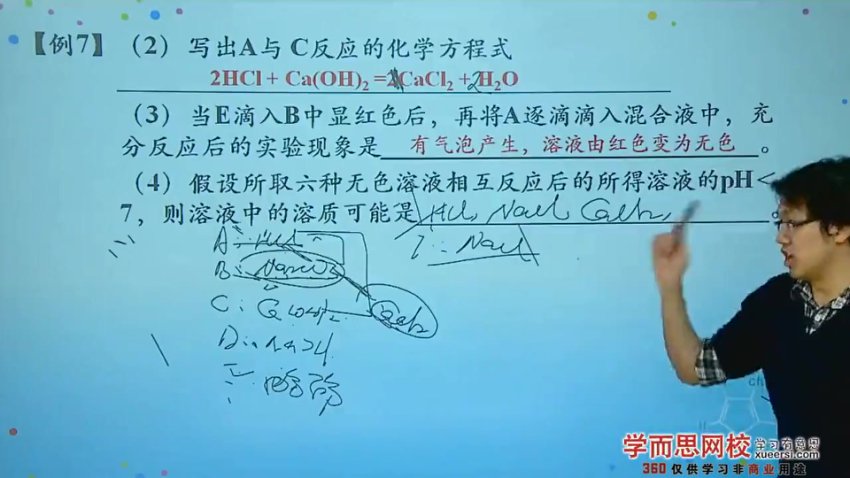 【例7】（2）写出A与 C反应的化学方程式
2HCl + Ca(OH)₂ = CaCl₂ + 2H₂O
（3）当E滴入B中显红色后，再将A逐滴滴入混合液中，充
分反应后的实验现象是 有气泡产生，溶液由红色变为无色 。
（4）假设所取六种无色溶液相互反应后的所得溶液的pH＜
7，则溶液中的溶质可能是 HCl, NaCl, CaCl₂, 。
A: HCl
B: Na₂CO₃
C: Ca(OH)₂ CaCl₂
学而思网校 学习有意思
xueersi.com
360 仅供学习非商业用途